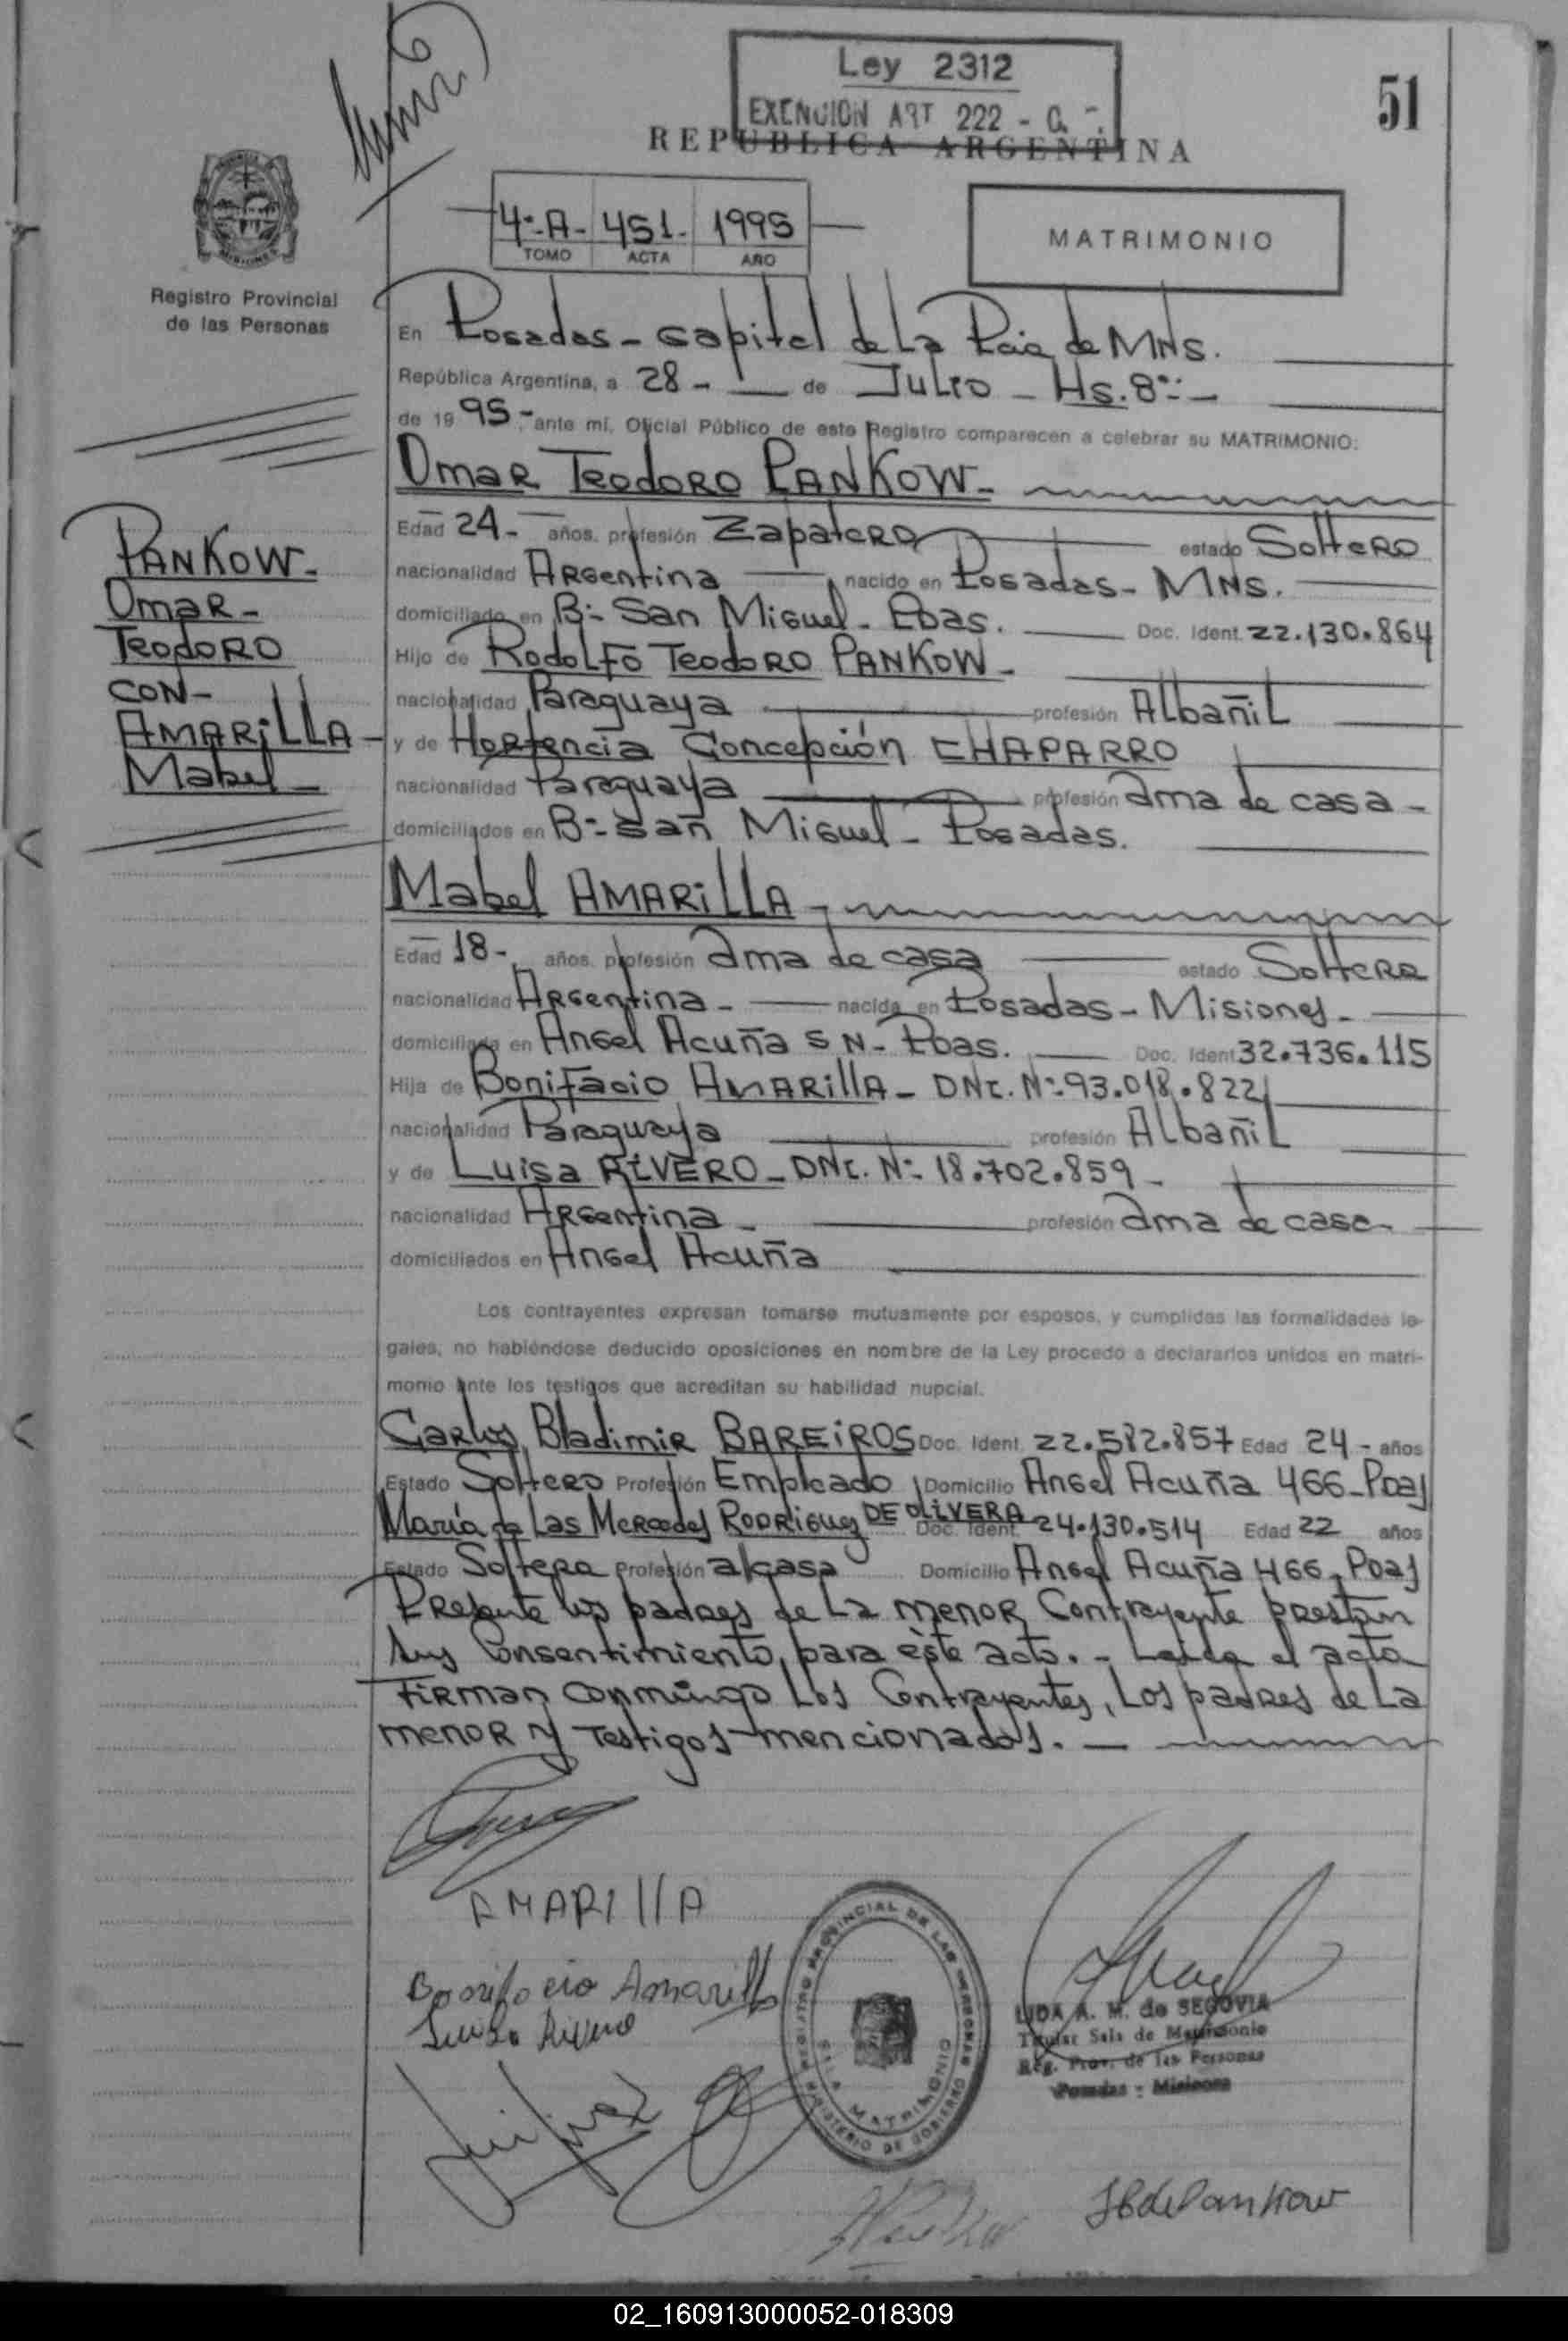 Ley 2312
EXENCION ART 222 - C. -
51
REPUBLICA ARGENTINA
4º-A- 451- 1995
TOMO ACTA AÑO
MATRIMONIO
Registro Provincial
de las Personas
En Posadas - Capital de La Pcia de MNS.
República Argentina, a 28 - de Julio - Hs. 8
de 1995 - ante mí, Oficial Público de este Registro comparecen a celebrar su MATRIMONIO:
Omar Teodoro PANKOW -
Edad 24 - años, profesión Zapatero estado Soltero
nacionalidad Argentina nacido en Posadas - MNS.
domiciliado en Bº- San Miguel - Pdas. Doc. Ident. 22.130.864
Hijo de Rodolfo Teodoro PANKOW -
nacionalidad Paraguaya profesión Albañil
y de Hortencia Concepción CHAPARRO
nacionalidad Paraguaya profesión ama de casa -
domiciliados en Bº- San Miguel - Posadas.
PANKOW -
Omar -
Teodoro
CON -
AMARILLA -
Mabel -
Mabel AMARILLA -
Edad 18 - años, profesión ama de casa estado Soltera
nacionalidad Argentina - nacida en Posadas - Misiones -
domiciliada en Angel Acuña S N - Pdas. Doc. Ident 32.736.115
Hija de Bonifacio AMARILLA - DNI. Nº- 93.018.822
nacionalidad Paraguaya profesión Albañil
y de Luisa RIVERO - DNI. Nº- 18.702.859 -
nacionalidad Argentina - profesión ama de casa -
domiciliados en Angel Acuña
Los contrayentes expresan tomarse mutuamente por esposos, y cumplidas las formalidades le-
gales, no habiéndose deducido oposiciones en nombre de la Ley procedo a declararlos unidos en matri-
monio ante los testigos que acreditan su habilidad nupcial.
Carlos Bladimir BAREIROS Doc. Ident. 22.582.857 Edad 24 - años
Estado Soltero Profesión Empleado Domicilio Angel Acuña 466 - Pdas
María de Las Mercedes Rodriguez DE OLIVERA Doc. Ident. 24.130.514 Edad 22 años
Estado Soltera Profesión a/casa Domicilio Angel Acuña 466 - Pdas
Presente los padres de La menor Contrayente prestan
sus Consentimiento, para éste acto. - Leída el acta
Firman conmingo Los Contrayentes, Los padres de La
menor y Testigos mencionados. -
AMARIllA
Bonifacio Amarilla
Luisa Rivero
REGISTRO PROVINCIAL DE LAS PERSONAS
MINISTERIO DE GOBIERNO
SALA MATRIMONIO
LIDA A. M. de SEGOVIA
Titular Sala de Matrimonio
Reg. Prov. de las Personas
Posadas - Misiones
02_160913000052-018309